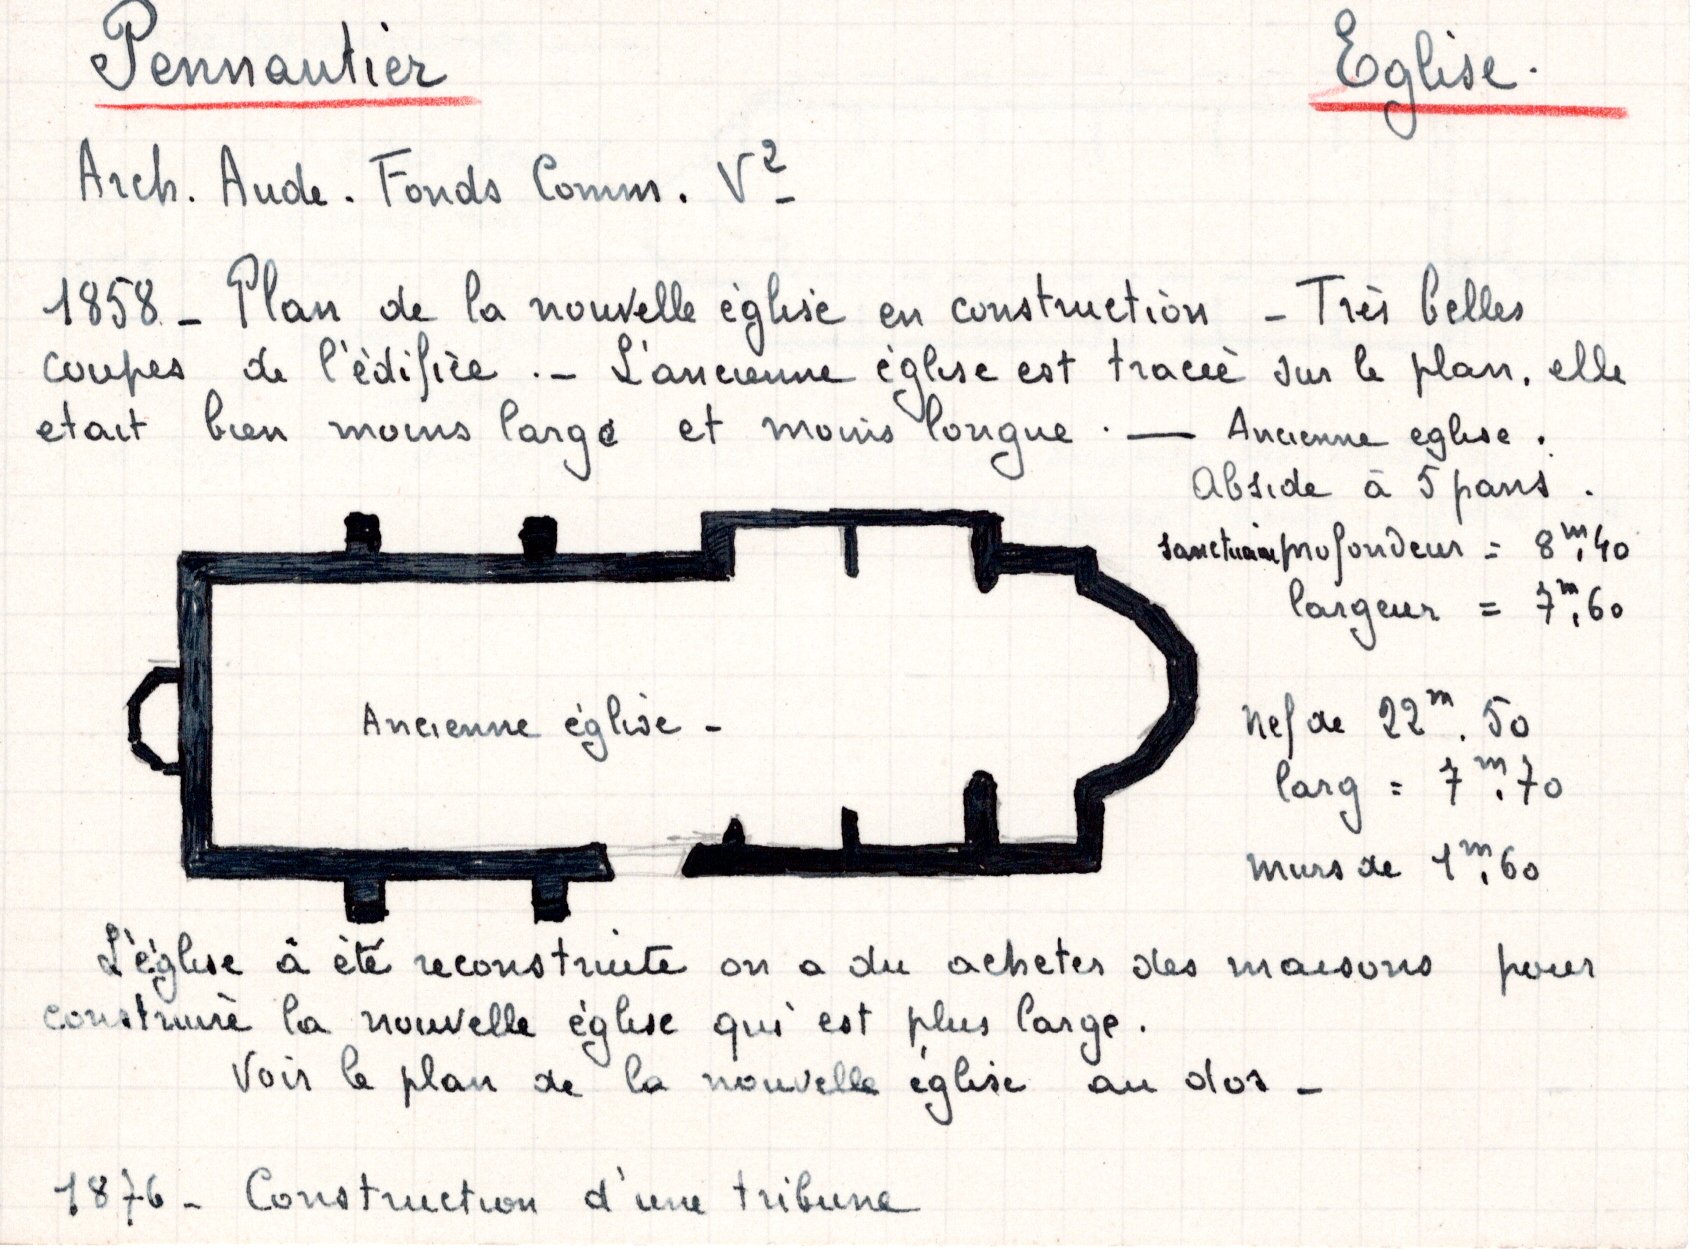 Pennautier Eglise.
Arch. Aude. Fonds Comm. V²
1858 - Plan de la nouvelle église en construction - Très belles
coupes de l'édifice. - L'ancienne église est tracée sur le plan, elle
etait bien moins large et moins longue. — Ancienne eglise.
Abside à 5 pans.
sanctuaire profondeur = 8m,40
largeur = 7m,60
Ancienne église -
Nef de 22m.50
larg = 7m.70
murs de 1m,60
L'église à été reconstruite on a du acheter des maisons pour
construire la nouvelle église qui est plus large.
Voir le plan de la nouvelle église au dos -
1876 - Construction d'une tribune